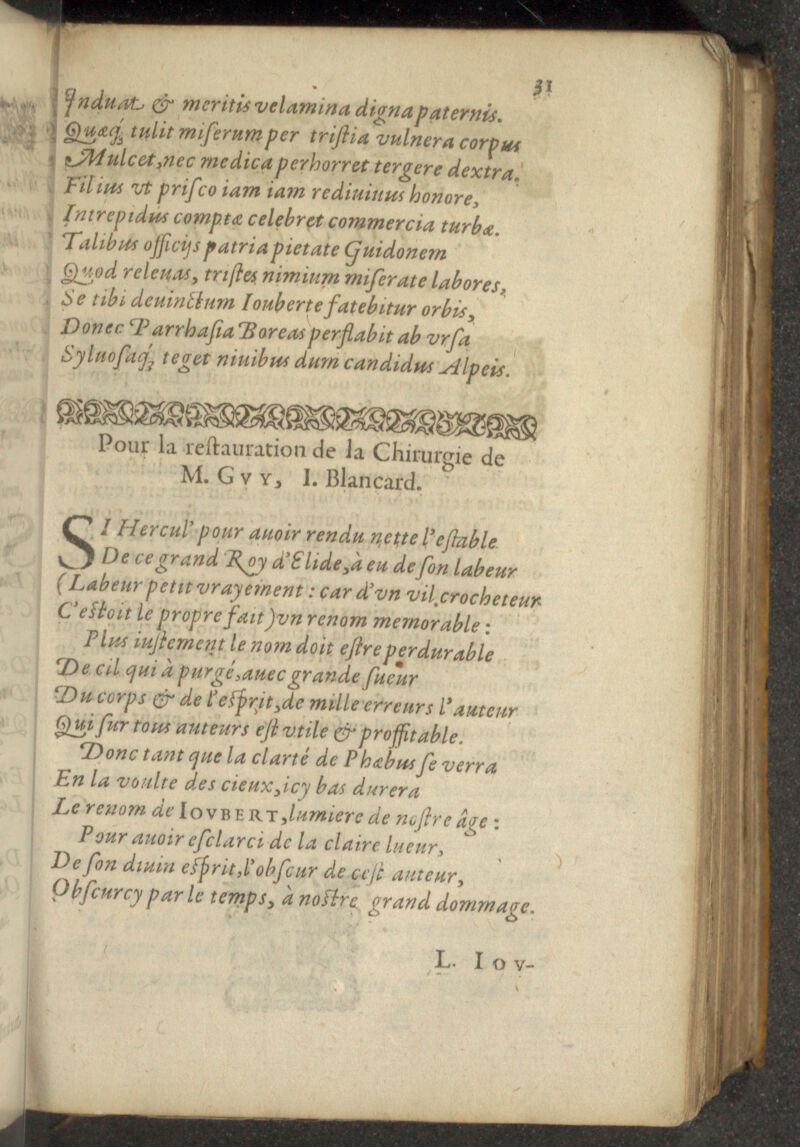 31
Induat & meritis velamina digna paternis.
Quæq; tulit miſerum per triſtia vulnera corpus
Mulcet, nec medica perhorret tergere dextra.
Filius vt priſco iam iam rediuiuus honore,
Intrepidus comptæ celebret commercia turbæ.
Talibus officijs patria pietate Guidonem
Quod releuas, triſtes nimium miſerate labores,
Se tibi deuinctum Iouberte fatebitur orbis,
Donec Parrhaſia Boreas perflabit ab vrſa
Syluoſaq; teget niuibus dum candidus Alpeis.
Pour la reſtauration de la Chirurgie de
M. GVY, I. Blancard.
SI Hercul' pour auoir rendu nette l'eſtable
De ce grand Roy d'Elide, à eu de ſon labeur
(Labeur petit vrayement : car d'vn vil crocheteur
C'eſtoit le propre fait) vn renom memorable :
Plus iuſtement le nom doit eſtre perdurable
De cil qui à purgé, auec grande ſueur
Du corps & de l'eſprit, de mille erreurs l'auteur
Qui ſur tous auteurs eſt vtile & proffitable.
Donc tant que la clarté de Phæbus ſe verra
En la voulte des cieux, icy bas durera
Le renom de IOVBERT, lumiere de noſtre âge :
Pour auoir eſclarci de la claire lueur,
De ſon diuin eſprit, l'obſcur de ceſt auteur,
Obſcurcy par le temps, à noſtre grand dommage.
L. IOV-